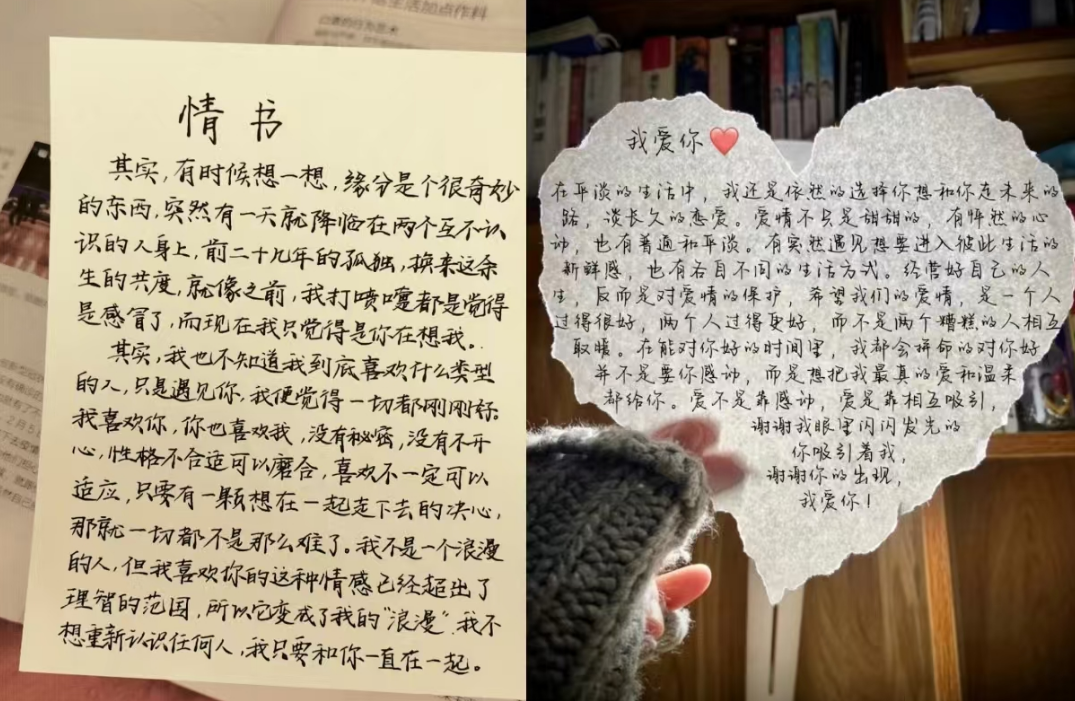 生活加点作料
情书
其实,有时候想一想,缘分是个很奇妙
的东西,突然有一天就降临在两个互不认
识的人身上,前二十九年的孤独,换来这余
生的共度,就像之前,我打喷嚏都是觉得
是感冒了,而现在我只觉得是你在想我。
其实,我也不知道我到底喜欢什么类型
的人,只是遇见你,我便觉得一切都刚刚好。
我喜欢你,你也喜欢我,没有秘密,没有不开
心,性格不合适可以磨合,喜欢不一定可以
适应,只要有一颗想在一起走下去的决心,
那就一切都不是那么难了。我不是一个浪漫
的人,但我喜欢你的这种情感已经超出了
理智的范围,所以它变成了我的“浪漫”.我不
想重新认识任何人,我只要和你一直在一起。
我爱你❤️
在平淡的生活中,我还是依然的选择你想和你走未来的
路,谈长久的恋爱。爱情不只是甜甜的,有怦然的心
动,也有普通和平淡。有突然遇见想要进入彼此生活的
新鲜感,也有各自不同的生活方式。经营好自己的人
生,反而是对爱情的保护,希望我们的爱情,是一个人
过得很好,两个人过得更好,而不是两个糟糕的人相互
取暖。在能对你好的时间里 我都会拼命的对你好
并不是要你感动,而是想把我最真的爱和温柔
都给你。爱不是靠感动,爱是靠相互吸引,
谢谢我眼里闪闪发光的
你吸引着我,
谢谢你的出现,
我爱你!